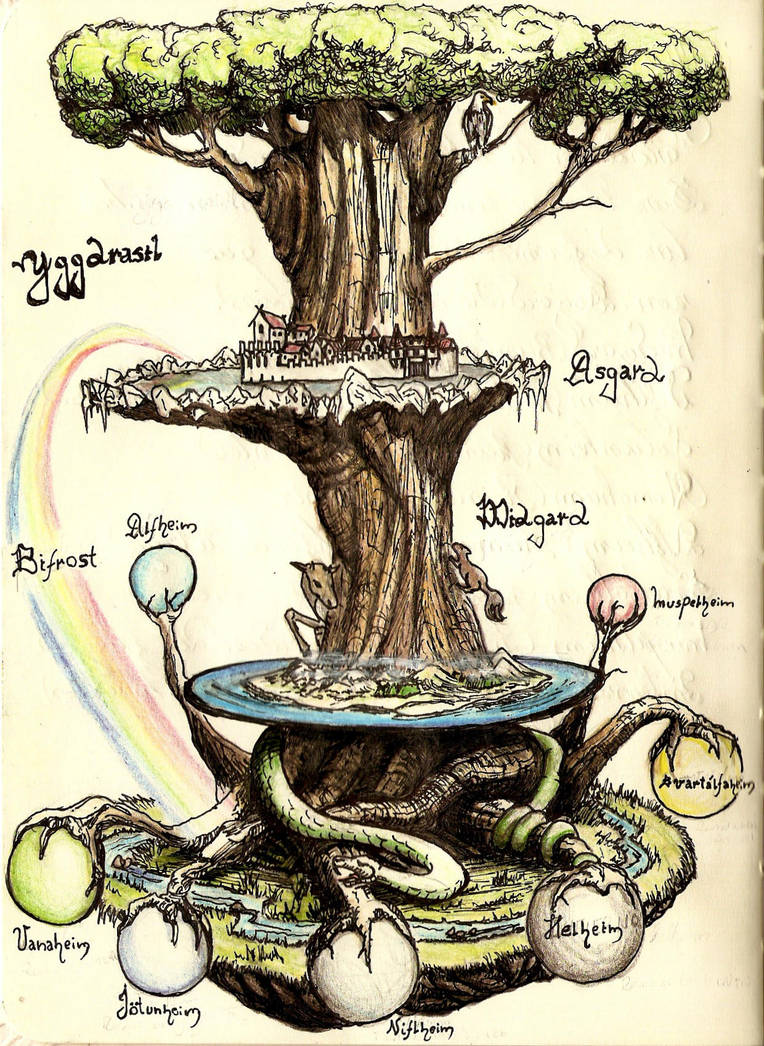 Yggdrasil
Asgard
Midgard
Alfheim
Bifrost
Muspelheim
Svartálfaheim
Vanaheim
Helheim
Jötunheim
Niflheim